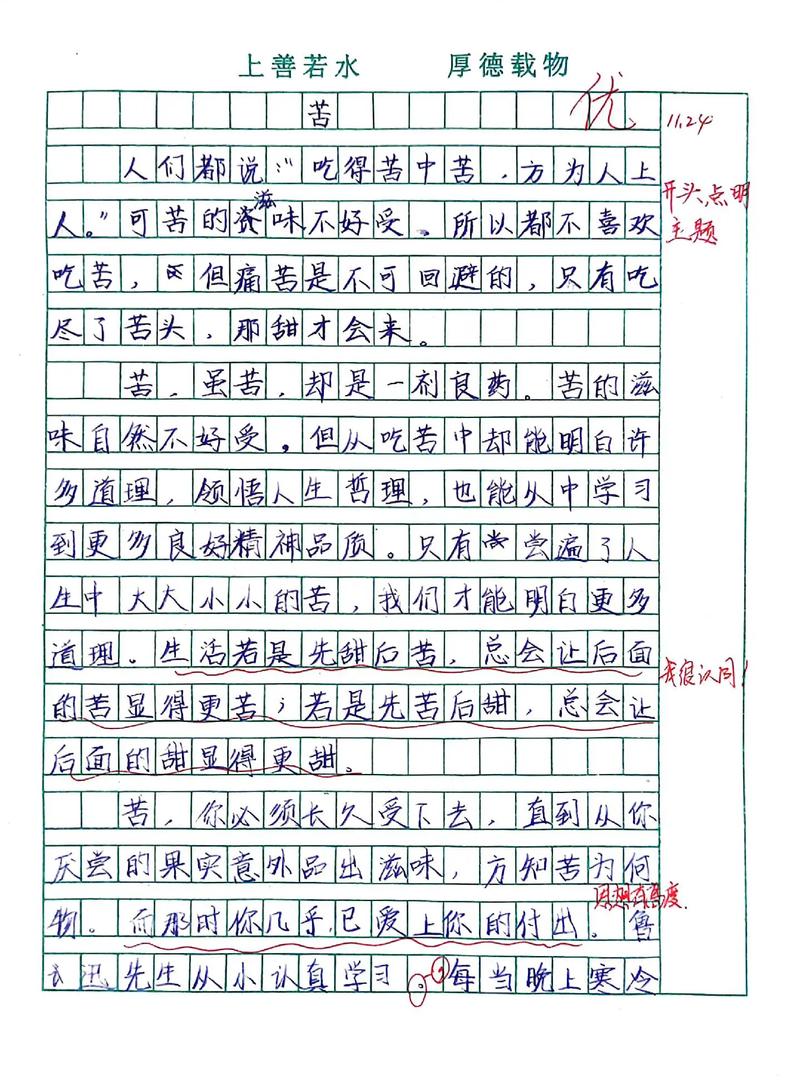 上善若水 厚德载物
苦 优
11.24
人们都说:“吃得苦中苦,方为人上
开头点明
主题
滋
人。”可苦的味不好受。所以都不喜欢
吃苦,但痛苦是不可回避的,只有吃
尽了苦头,那甜才会来。
苦,虽苦,却是一剂良药。苦的滋
味自然不好受,但从吃苦中却能明白许
多道理,领悟人生哲理,也能从中学习
到更多良好精神品质。只有尝遍了人
生中大大小小的苦,我们才能明白更多
道理。生活若是先甜后苦,总会让后面
我很认同!
的苦显得更苦;若是先苦后甜,总会让
后面的甜显得更甜。
苦,你必须长久受下去,直到从你
厌尝的果实意外品出滋味,方知苦为何
思想有高度.
物。而那时你几乎已爱上你的付出。鲁
迅先生从小认真学习。每当晚上寒冷